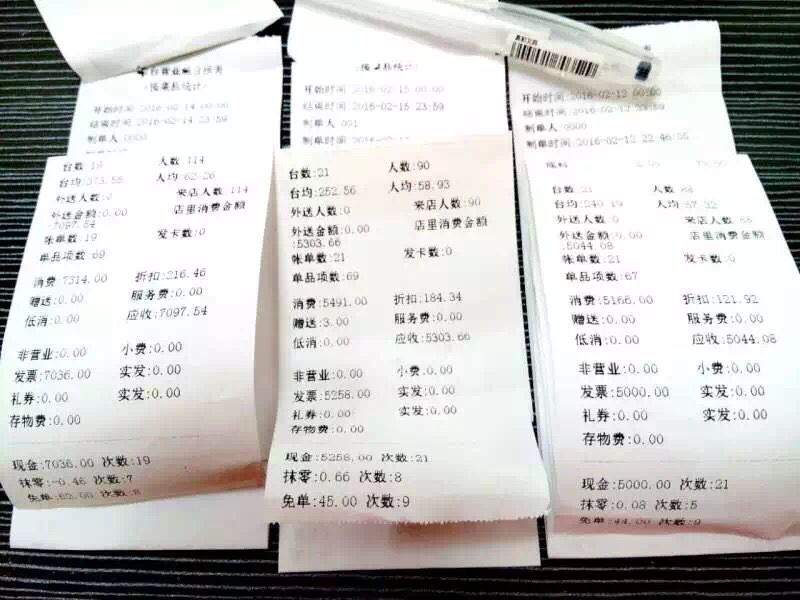 (按桌板统计)
开始时间:2016-02-14 00:00
结束时间:2016-02-14 23:59
制单人:0000
台数:19 人数:114
台均:373.55 人均:62.26
外送人数:0 来店人数:114
外送金额:0.00 店里消费金额
:7097.54
账单数:19 发卡数:0
单品项数:69
消费:7314.00 折扣:216.46
赠送:0.00 服务费:0.00
低消:0.00 应收:7097.54
非营业:0.00 小费:0.00
发票:7036.00 实发:0.00
礼券:0.00 实发:0.00
存物费:0.00
现金:7036.00 次数:19
抹零:-0.46 次数:7
免单:62.00 次数:8
开始时间:2016-02-15 00:00
结束时间:2016-02-15 23:59
制单人:001
台数:21 人数:90
台均:252.56 人均:58.93
外送人数:0 来店人数:90
外送金额:0.00 店里消费金额
:5303.66
账单数:21 发卡数:0
单品项数:69
消费:5491.00 折扣:184.34
赠送:3.00 服务费:0.00
低消:0.00 应收:5303.66
非营业:0.00 小费:0.00
发票:5258.00 实发:0.00
礼券:0.00 实发:0.00
存物费:0.00
现金:5258.00 次数:21
抹零:0.66 次数:8
免单:45.00 次数:9
开始时间:2016-02-12 00:00
结束时间:2016-02-12 23:59
制单人:0000
制单时间:2016-02-12 22:46:55
台数:21 人数:88
台均:240.19 人均:57.32
外送人数:0 来店人数:88
外送金额:0.00 店里消费金额
:5044.08
账单数:21 发卡数:0
单品项数:67
消费:5166.00 折扣:121.92
赠送:0.00 服务费:0.00
低消:0.00 应收:5044.08
非营业:0.00 小费:0.00
发票:5000.00 实发:0.00
礼券:0.00 实发:0.00
存物费:0.00
现金:5000.00 次数:21
抹零:0.08 次数:5
免单:44.00 次数:9